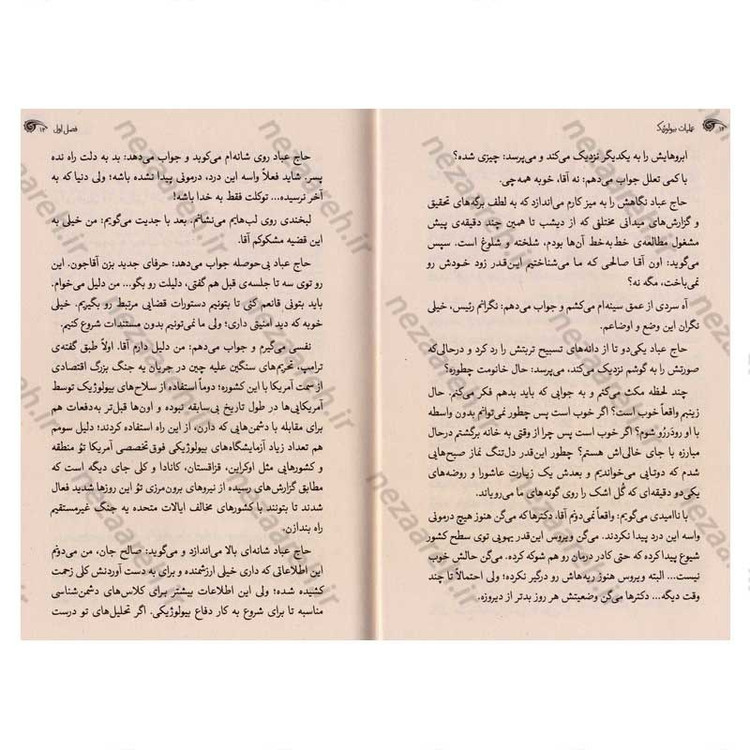 ۱۲ عملیات بیولوژیک
ابروهایش را به یکدیگر نزدیک می‌کند و می‌پرسد: چیزی شده؟
با کمی تعلل جواب می‌دهم: نه آقا، خوبه همه‌چی.
حاج عباد نگاهش را به میز کارم می‌اندازد که به لطف برگه‌های تحقیق
و گزارش‌های میدانی مختلفی که از دیشب تا همین چند دقیقه‌ی پیش
مشغول مطالعه‌ی خط‌به‌خط آن‌ها بودم، شلخته و شلوغ است. سپس
می‌گوید: اون آقا صالحی که ما می‌شناختیم این‌قدر زود خودش رو
نمی‌باخت، مگه نه؟
آه سردی از عمق سینه‌ام می‌کشم و جواب می‌دهم: نگرانم رئیس، خیلی
نگران این وضع و اوضاعم.
حاج عباد یکی‌دو تا از دانه‌های تسبیح تربتش را رد کرد و درحالی‌که
صورتش را به گوشم نزدیک می‌کند، می‌پرسد: حال خانومت چطوره؟
چند لحظه مکث می‌کنم و به جوابی که باید بدهم فکر می‌کنم. حال
زینبم واقعاً خوب است؟ اگر خوب است پس چطور نمی‌توانم بدون واسطه
با او رودررو شوم؟ اگر خوب است پس چرا از وقتی به خانه برگشتم درحال
مبارزه با جای خالی‌اش هستم؟ چطور این‌قدر دل‌تنگ نماز صبح‌هایی
شدم که دوتایی می‌خواندیم و بعدش یک زیارت عاشورا و روضه‌های
یکی‌دو دقیقه‌ای که گُل اشک را روی گونه‌های ما می‌رویاند.
با ناامیدی می‌گویم: واقعاً نمی‌دونم آقا. دکترها که می‌گن هنوز هیچ درمونی
واسه این درد پیدا نکردند. می‌گن ویروس این‌قدر یهویی توی سطح کشور
شیوع پیدا کرده که حتی کادر درمان رو هم شوکه کرده. می‌گن حالش خوب
نیست... البته ویروس هنوز ریه‌هاش رو درگیر نکرده؛ ولی احتمالاً تا چند
وقت دیگه... دکترها می‌گن وضعیتش هر روز بدتر از دیروزه.
فصل اول ۱۳
حاج عباد روی شانه‌ام می‌کوبد و جواب می‌دهد: بد به دلت راه نده
پسر. شاید فعلاً واسه این درد، درمونی پیدا نشده باشه؛ ولی دنیا که به
آخر نرسیده... توکلت فقط به خدا باشه!
لبخندی روی لب‌هایم می‌نشانم. بعد با جدیت می‌گویم: من خیلی به
این قضیه مشکوکم آقا.
حاج عباد بی‌حوصله جواب می‌دهد: حرفای جدید بزن آقاجون. این
رو توی سه تا جلسه‌ی قبل هم گفتی، دلیلت رو بگو... من دلیل می‌خوام.
باید بتونی قانعم کنی تا بتونیم دستورات قضایی مرتبط رو بگیریم. خیلی
خوبه که دید امنیتی داری؛ ولی ما نمی‌تونیم بدون مستندات شروع کنیم.
نفسی می‌گیرم و جواب می‌دهم: من دلیل دارم آقا. اولاً طبق گفته‌ی
ترامپ، تحریم‌های سنگین علیه چین در جریان یه جنگ بزرگ اقتصادی
از سمت آمریکا با این کشوره؛ دوماً استفاده از سلاح‌های بیولوژیک توسط
آمریکایی‌ها در طول تاریخ بی‌سابقه نبوده و اون‌ها قبل‌تر به‌دفعات هم
برای مقابله با دشمن‌هایی که دارن، از این راه استفاده کردند؛ دلیل سومم
هم تعداد زیاد آزمایشگاه‌های بیولوژیکی فوق‌تخصصی آمریکا تؤ منطقه
و کشورهایی مثل اوکراین، قزاقستان، کانادا و کلی جای دیگه است که
مطابق گزارش‌های رسیده از نیروهای برون‌مرزی تؤ این روزها شدید فعال
شدند تا بتونند با کشورهای مخالف ایالات متحده یه جنگ غیرمستقیم
راه بندازن.
حاج عباد شانه‌ای بالا می‌اندازد و می‌گوید: صالح جان، من می‌دونم
این اطلاعاتی که داری خیلی ارزشمنده و برای به دست آوردنش کلی زحمت
کشیده شده؛ ولی این اطلاعات بیشتر برای کلاس‌های دشمن‌شناسی
مناسبه تا برای شروع یه کار دفاع بیولوژیکی. اگر تحلیل‌های تو درست
nezaareh.ir